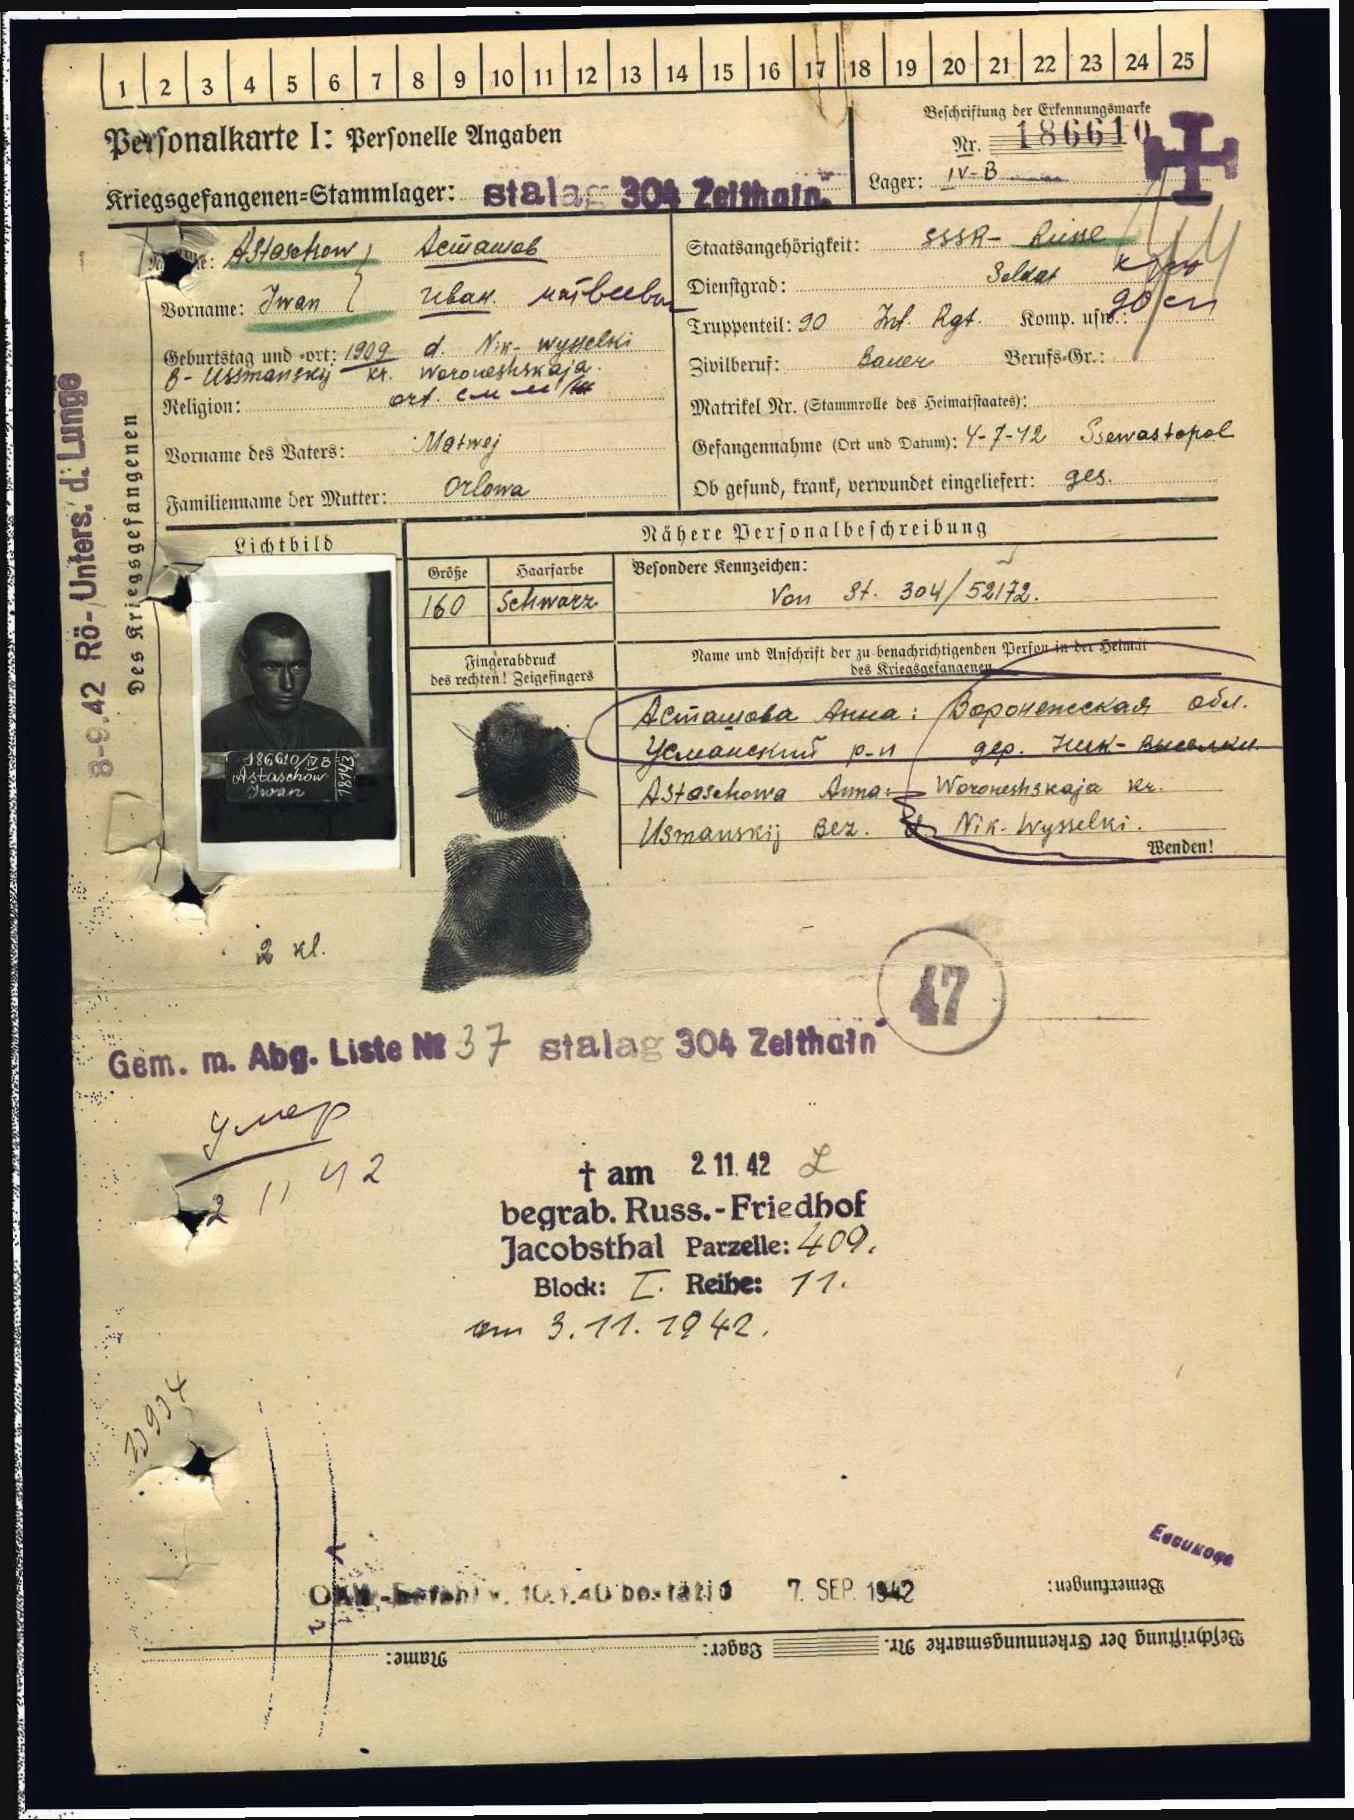 1 2 3 4 5 6 7 8 9 10 11 12 13 14 15 16 17 18 19 20 21 22 23 24 25
Personalkarte I: Personelle Angaben
Beschriftung der Erkennungsmarke
Nr. 186610
Kriegsgefangenen=Stammlager: stalag 304 Zeithain.
Lager: IV-B
Astaschow Асташов
Vorname: Iwan Иван
Geburtstag und =ort: 1909 d. Nik- Wysselki
B- Ussmanskij kr. Woroneshskaja.
Religion:
Vorname des Vaters: Matwej
Familienname der Mutter: Orlowa
Staatsangehörigkeit: SSSR- Russe
Dienstgrad: Soldat
Truppenteil: 90 Inf. Rgt. Komp. usw.:
Zivilberuf: Bauer Berufs=Gr.:
Matrikel Nr. (Stammrolle des Heimatstaates):
Gefangennahme (Ort und Datum): 4-7-42 Ssewastopol
Ob gesund, krank, verwundet eingeliefert: ges.
8-9.42 Rö-Unters. d. Lunge
Des Kriegsgefangenen
Lichtbild
Nähere Personalbeschreibung
Größe Haarfarbe Besondere Kennzeichen:
160 Schwarz Von St. 304/52172.
Fingerabdruck
des rechten! Zeigefingers
Name und Anschrift der zu benachrichtigenden Person in der Heimat
des Kriegsgefangenen
186610/IV B
Astaschow
Iwan
18143
Асташова Анна: Воронежская обл.
Усманский р-н дер. Ник- Выселки
Astaschowa Anna: Woroneshskaja kr.
Usmanskij Bez. d. Nik- Wysselki.
Wenden!
2 kl.
47
Gem. m. Abg. Liste № 37 stalag 304 Zeithain
Умер
2 11 42
† am 2.11.42
begrab. Russ.-Friedhof
Jacobsthal Parzelle: 409.
Block: I. Reihe: 11.
am 3.11.1942.
Евсикова
Bemerkungen:
7. SEP. 1942
Beschriftung der Erkennungsmarke Nr. Lager: Name: